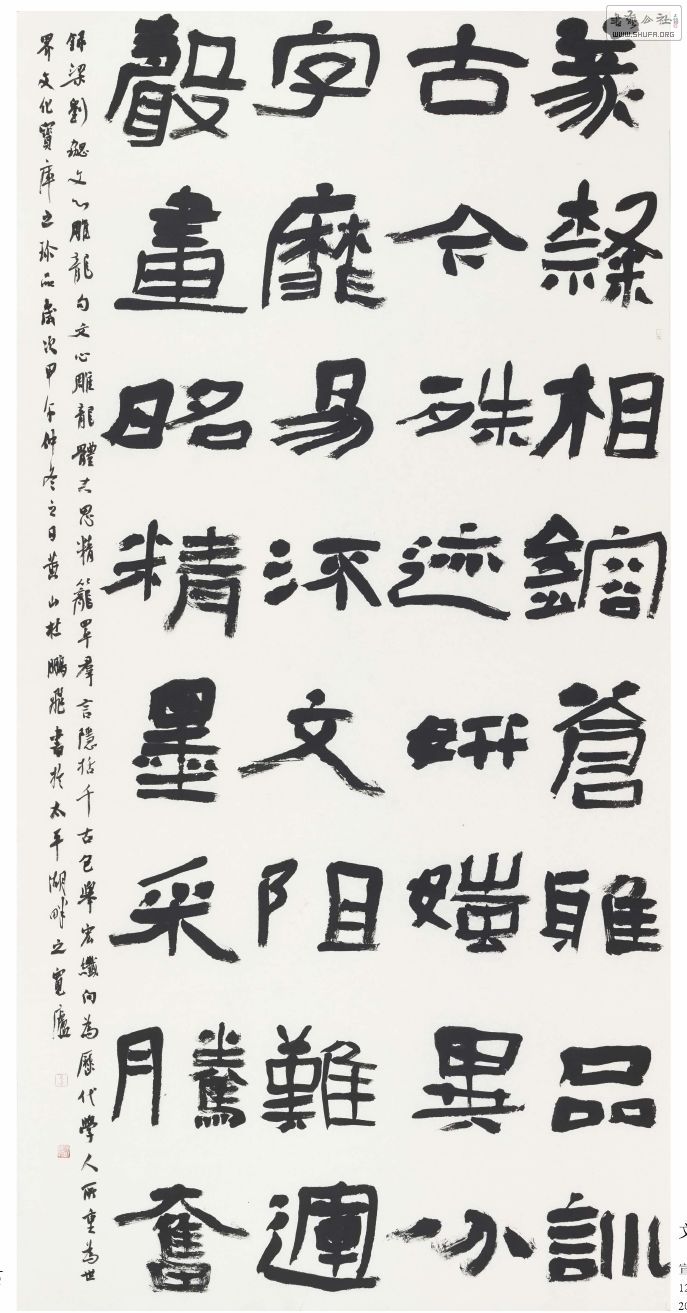 書藝公社
WWW.SHUFA.ORG
篆隸相鎔蒼雅品訓
古今殊迹妍媸異分
字靡易流文阻難運
聲畫昭精墨采騰奮
錄梁劉勰文心雕龍句文心雕龍體大思精籠罩羣言隱括千古包舉宏纖向為歷代學人所重為世
界文化寶庫之珍品歲次甲午仲冬之日黃山杜鵬飛書於太平湖畔之寬廬